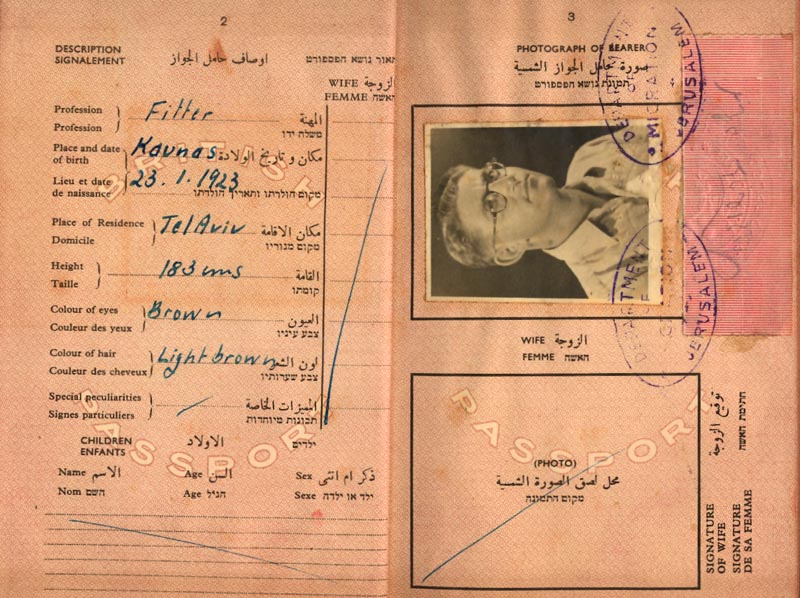 2
DESCRIPTION
SIGNALEMENT
اوصاف حامل الجواز
תאור נושא הפספורט
WIFE الزوجة
FEMME האשה
Profession
Profession
Fitter
المهنة
משלח ידו
Place and date
of birth
Kaunas
مكان و تاريخ الولادة
Lieu et date
de naissance
23.1.1923
מקום הולדתו ותאריך הולדתו
Place of Residence
Domicile
Tel Aviv
مكان الاقامة
מקום מגוריו
Height
Taille
183 cms
القامة
קומתו
Colour of eyes
Couleur des yeux
Brown
العيون
צבע עיניו
Colour of hair
Couleur des cheveux
Light brown
لون الشعر
צבע שערותיו
Special peculiarities
Signes particuliers
المميزات الخاصة
תכונות מיוחדות
BRITISH
PASSPORT
CHILDREN
ENFANTS
الاولاد
ילדים
Name الاسم Age السن Sex ذكر ام انثى
Nom השם Age הגיל Sexe ילד או ילדה
3
PHOTOGRAPH OF BEARER
صورة حامل الجواز الشمسية
תמונת נושא הפספורט
DEPARTMENT OF MIGRATION JERUSALEM
DEPARTMENT OF MIGRATION JERUSALEM
WIFE الزوجة
FEMME האשה
PASSPORT
(PHOTO)
محل لصق الصورة الشمسية
מקום התמונה
SIGNATURE
OF WIFE
SIGNATURE
DE SA FEMME
توقيع الزوجة
חתימת האשה